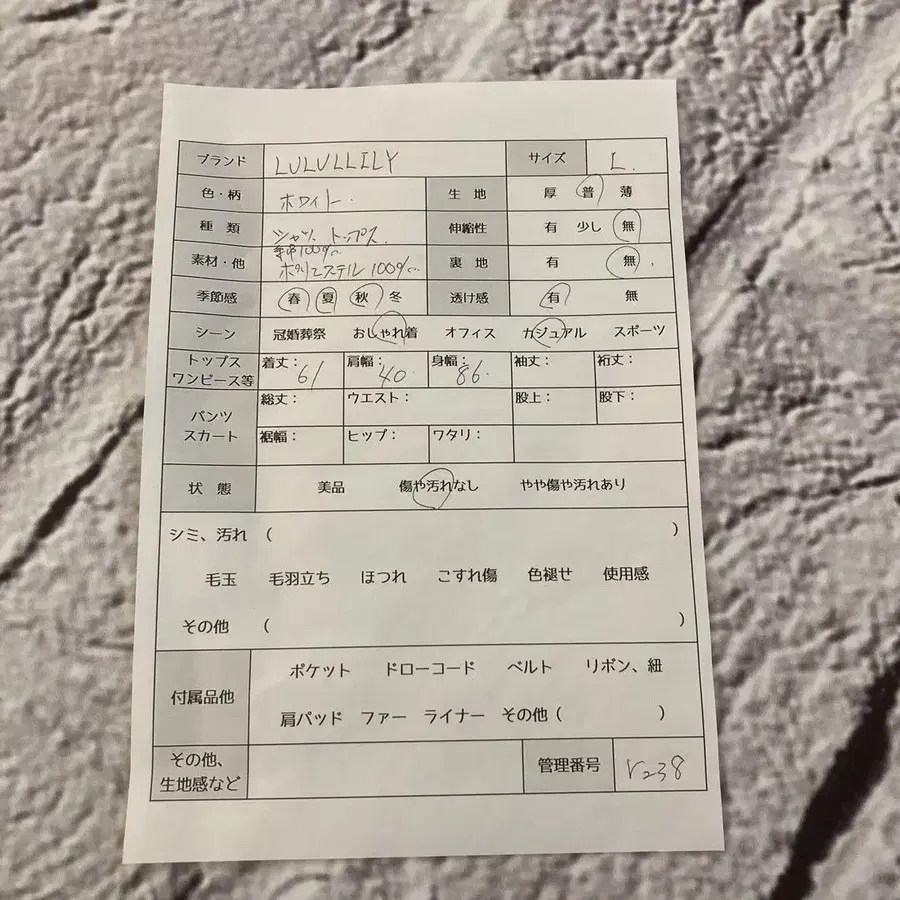 ブランド LULULLILY サイズ L.
色・柄 ホワイト. 生地 厚 普 薄
種類 シャツ トップス. 伸縮性 有 少し 無
素材・他 綿100% ポリエステル100% 裏地 有 無
季節感 春 夏 秋 冬 透け感 有 無
シーン 冠婚葬祭 おしゃれ着 オフィス カジュアル スポーツ
トップス ワンピース等 着丈： 61 肩幅： 40 身幅： 86 袖丈： 裄丈：
パンツ スカート 総丈： ウエスト： 股上： 股下：
裾幅： ヒップ： ワタリ：
状態 美品 傷や汚れなし やや傷や汚れあり
シミ、汚れ （ ）
毛玉 毛羽立ち ほつれ こすれ傷 色褪せ 使用感
その他 （ ）
付属品他 ポケット ドローコード ベルト リボン、紐
肩パッド ファー ライナー その他（ ）
その他、生地感など 管理番号 V238